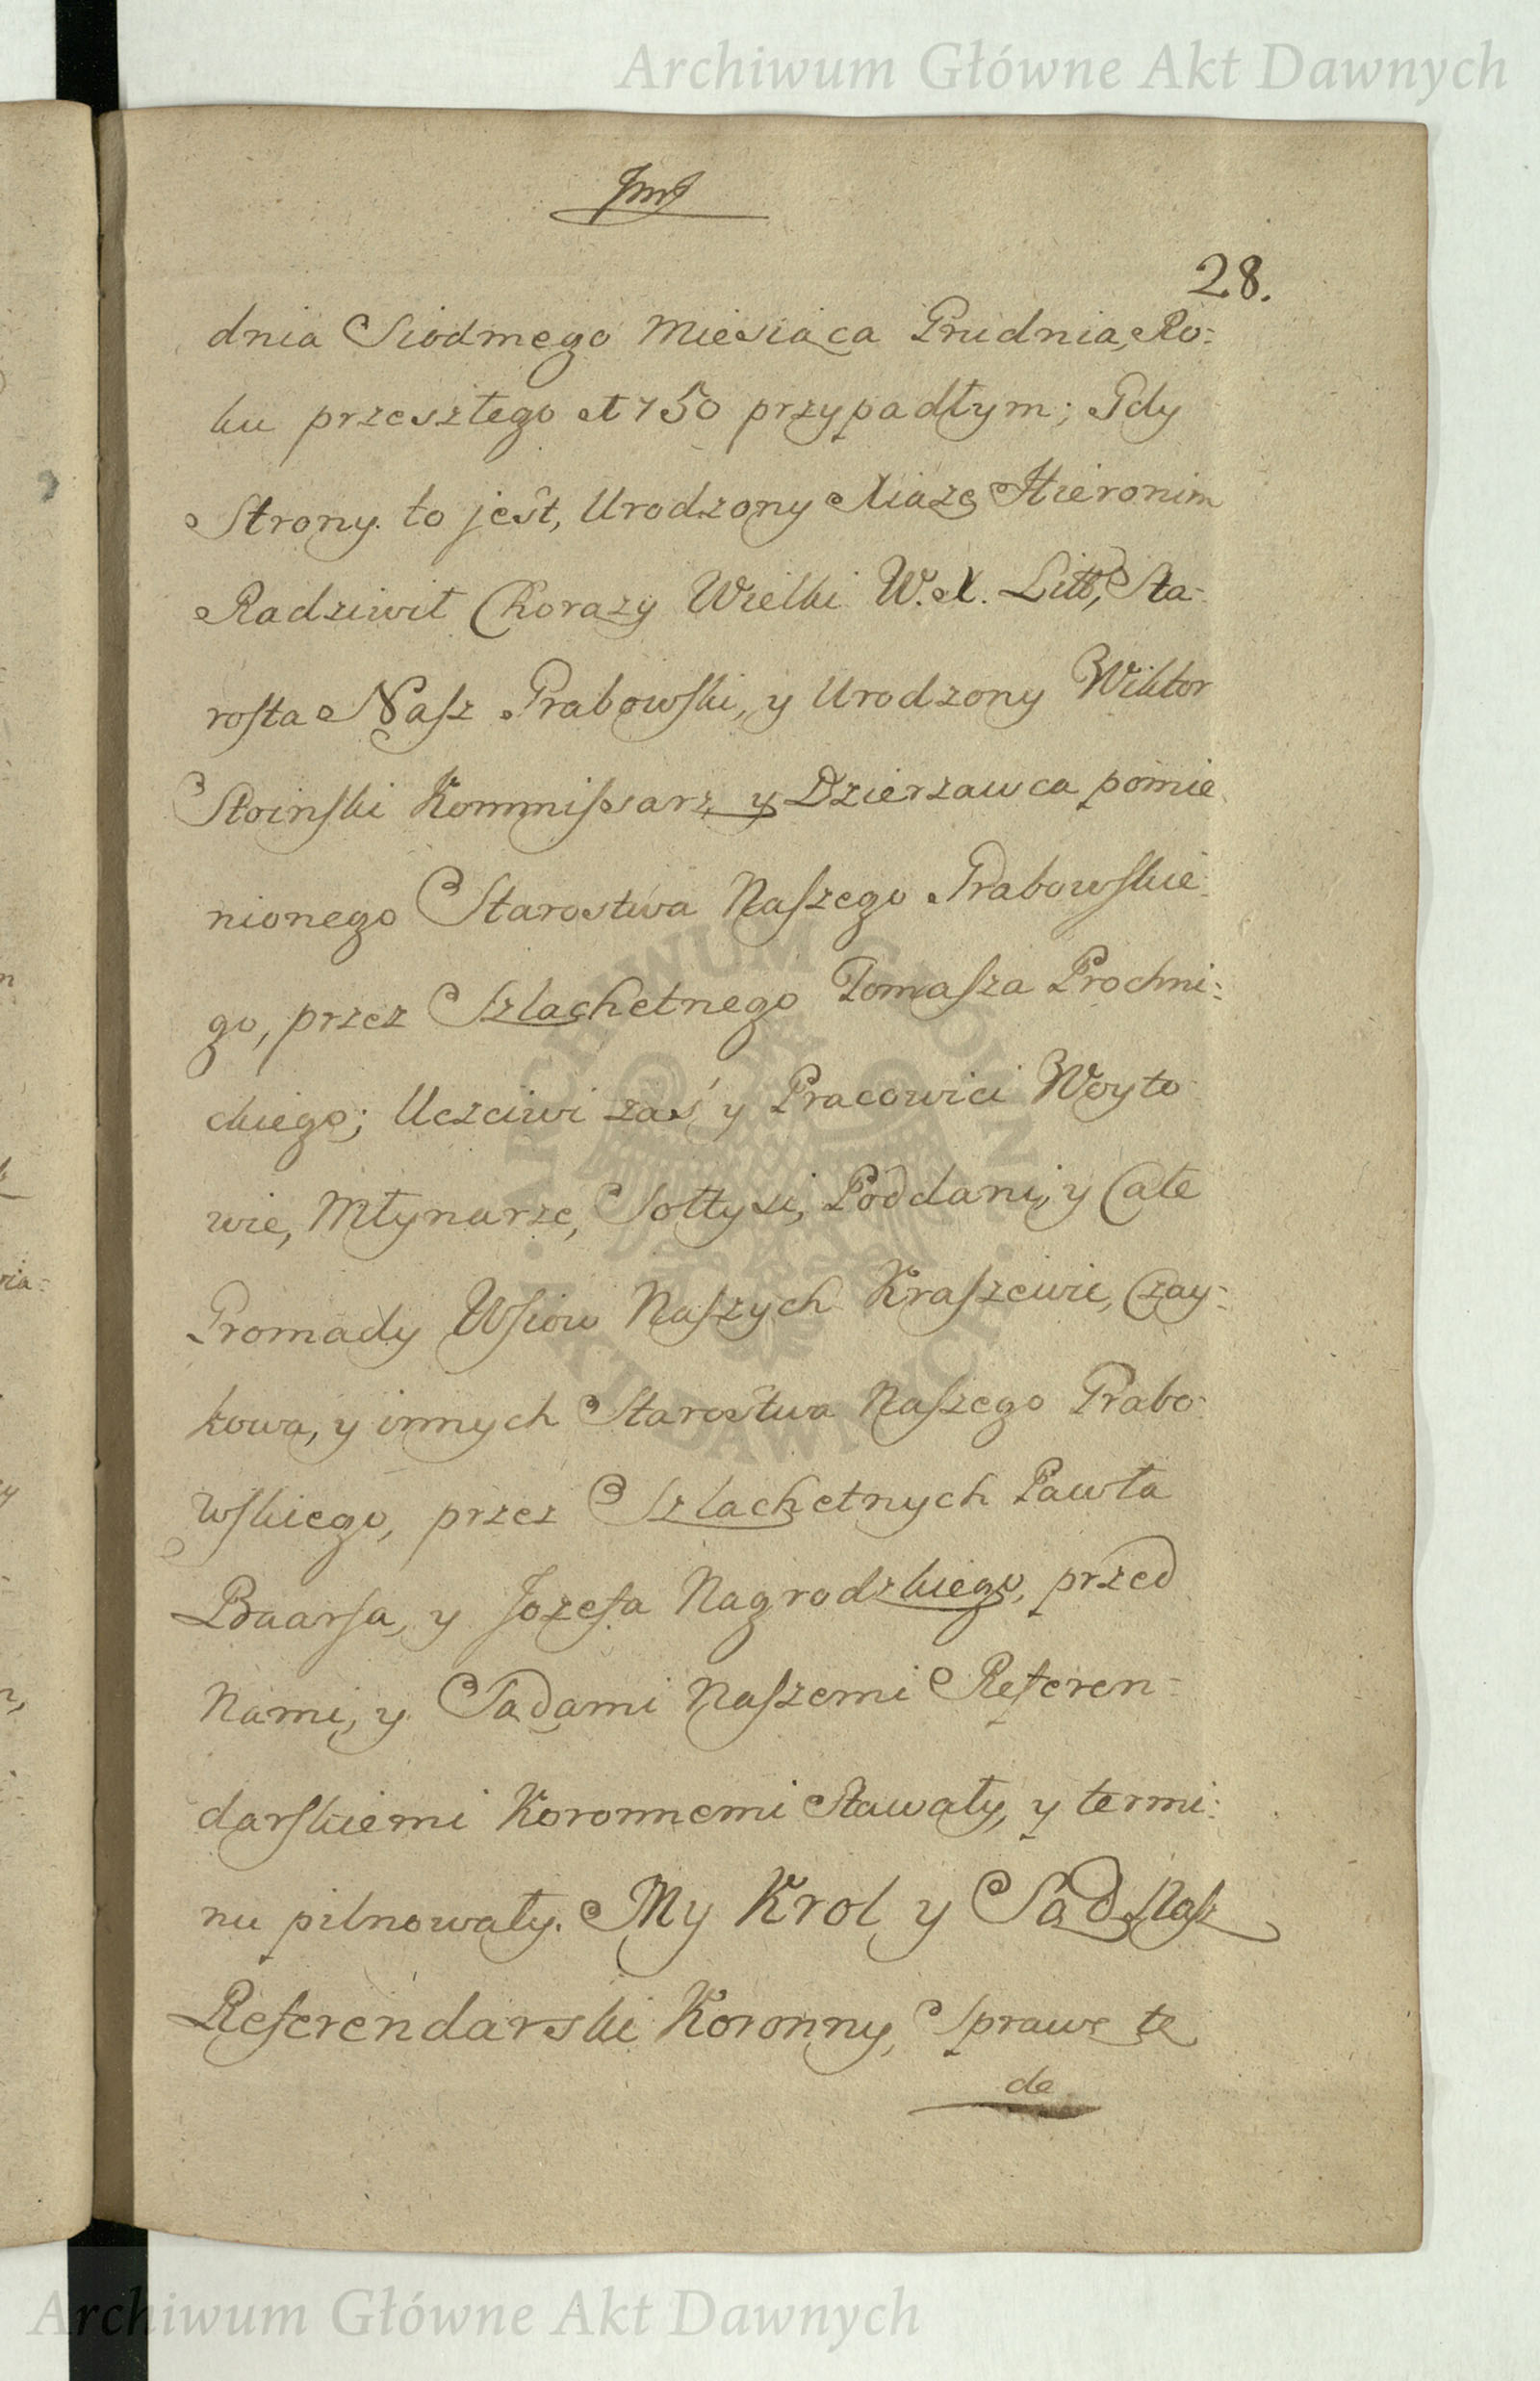 Archiwum Główne Akt Dawnych
28.
dnia Siodmego Miesiąca Grudnia, Ro-
ku przeszłego 1750 przypadłym; Gdy
Strony to jest, Urodzony Xiąże Hieronim
Radziwił Chorązy Wielki W. X. Litt, Sta-
rosta Nasz Grabowski, y Urodzony Wiktor
Stoinski Kommissarz y Dzierzawca pomie
nionego Starostwa Naszego Grabowskie-
go, przez Szlachetnego Tomasza Prochni-
ckiego; Uczciwi zaś y Pracowici Woyto
wie, Młynarze, Sołtysi, Poddani, y Całe
Gromady Wsiow Naszych Kraszewic, Czay-
kowa, y innych Starostwa Naszego Grabo-
wskiego, przez Szlachetnych Pawła
Baarsa, y Jozefa Nagrodzkiego, przed
Nami, y Sądami Naszemi Referen-
darskiemi Koronnemi Stawały, y termi-
nu pilnowały. My Krol y Sąd Nasz
Referendarski Koronny, Sprawę tę
de
ARCHIWUM GŁÓWNE AKT DAWNYCH
Archiwum Główne Akt Dawnych